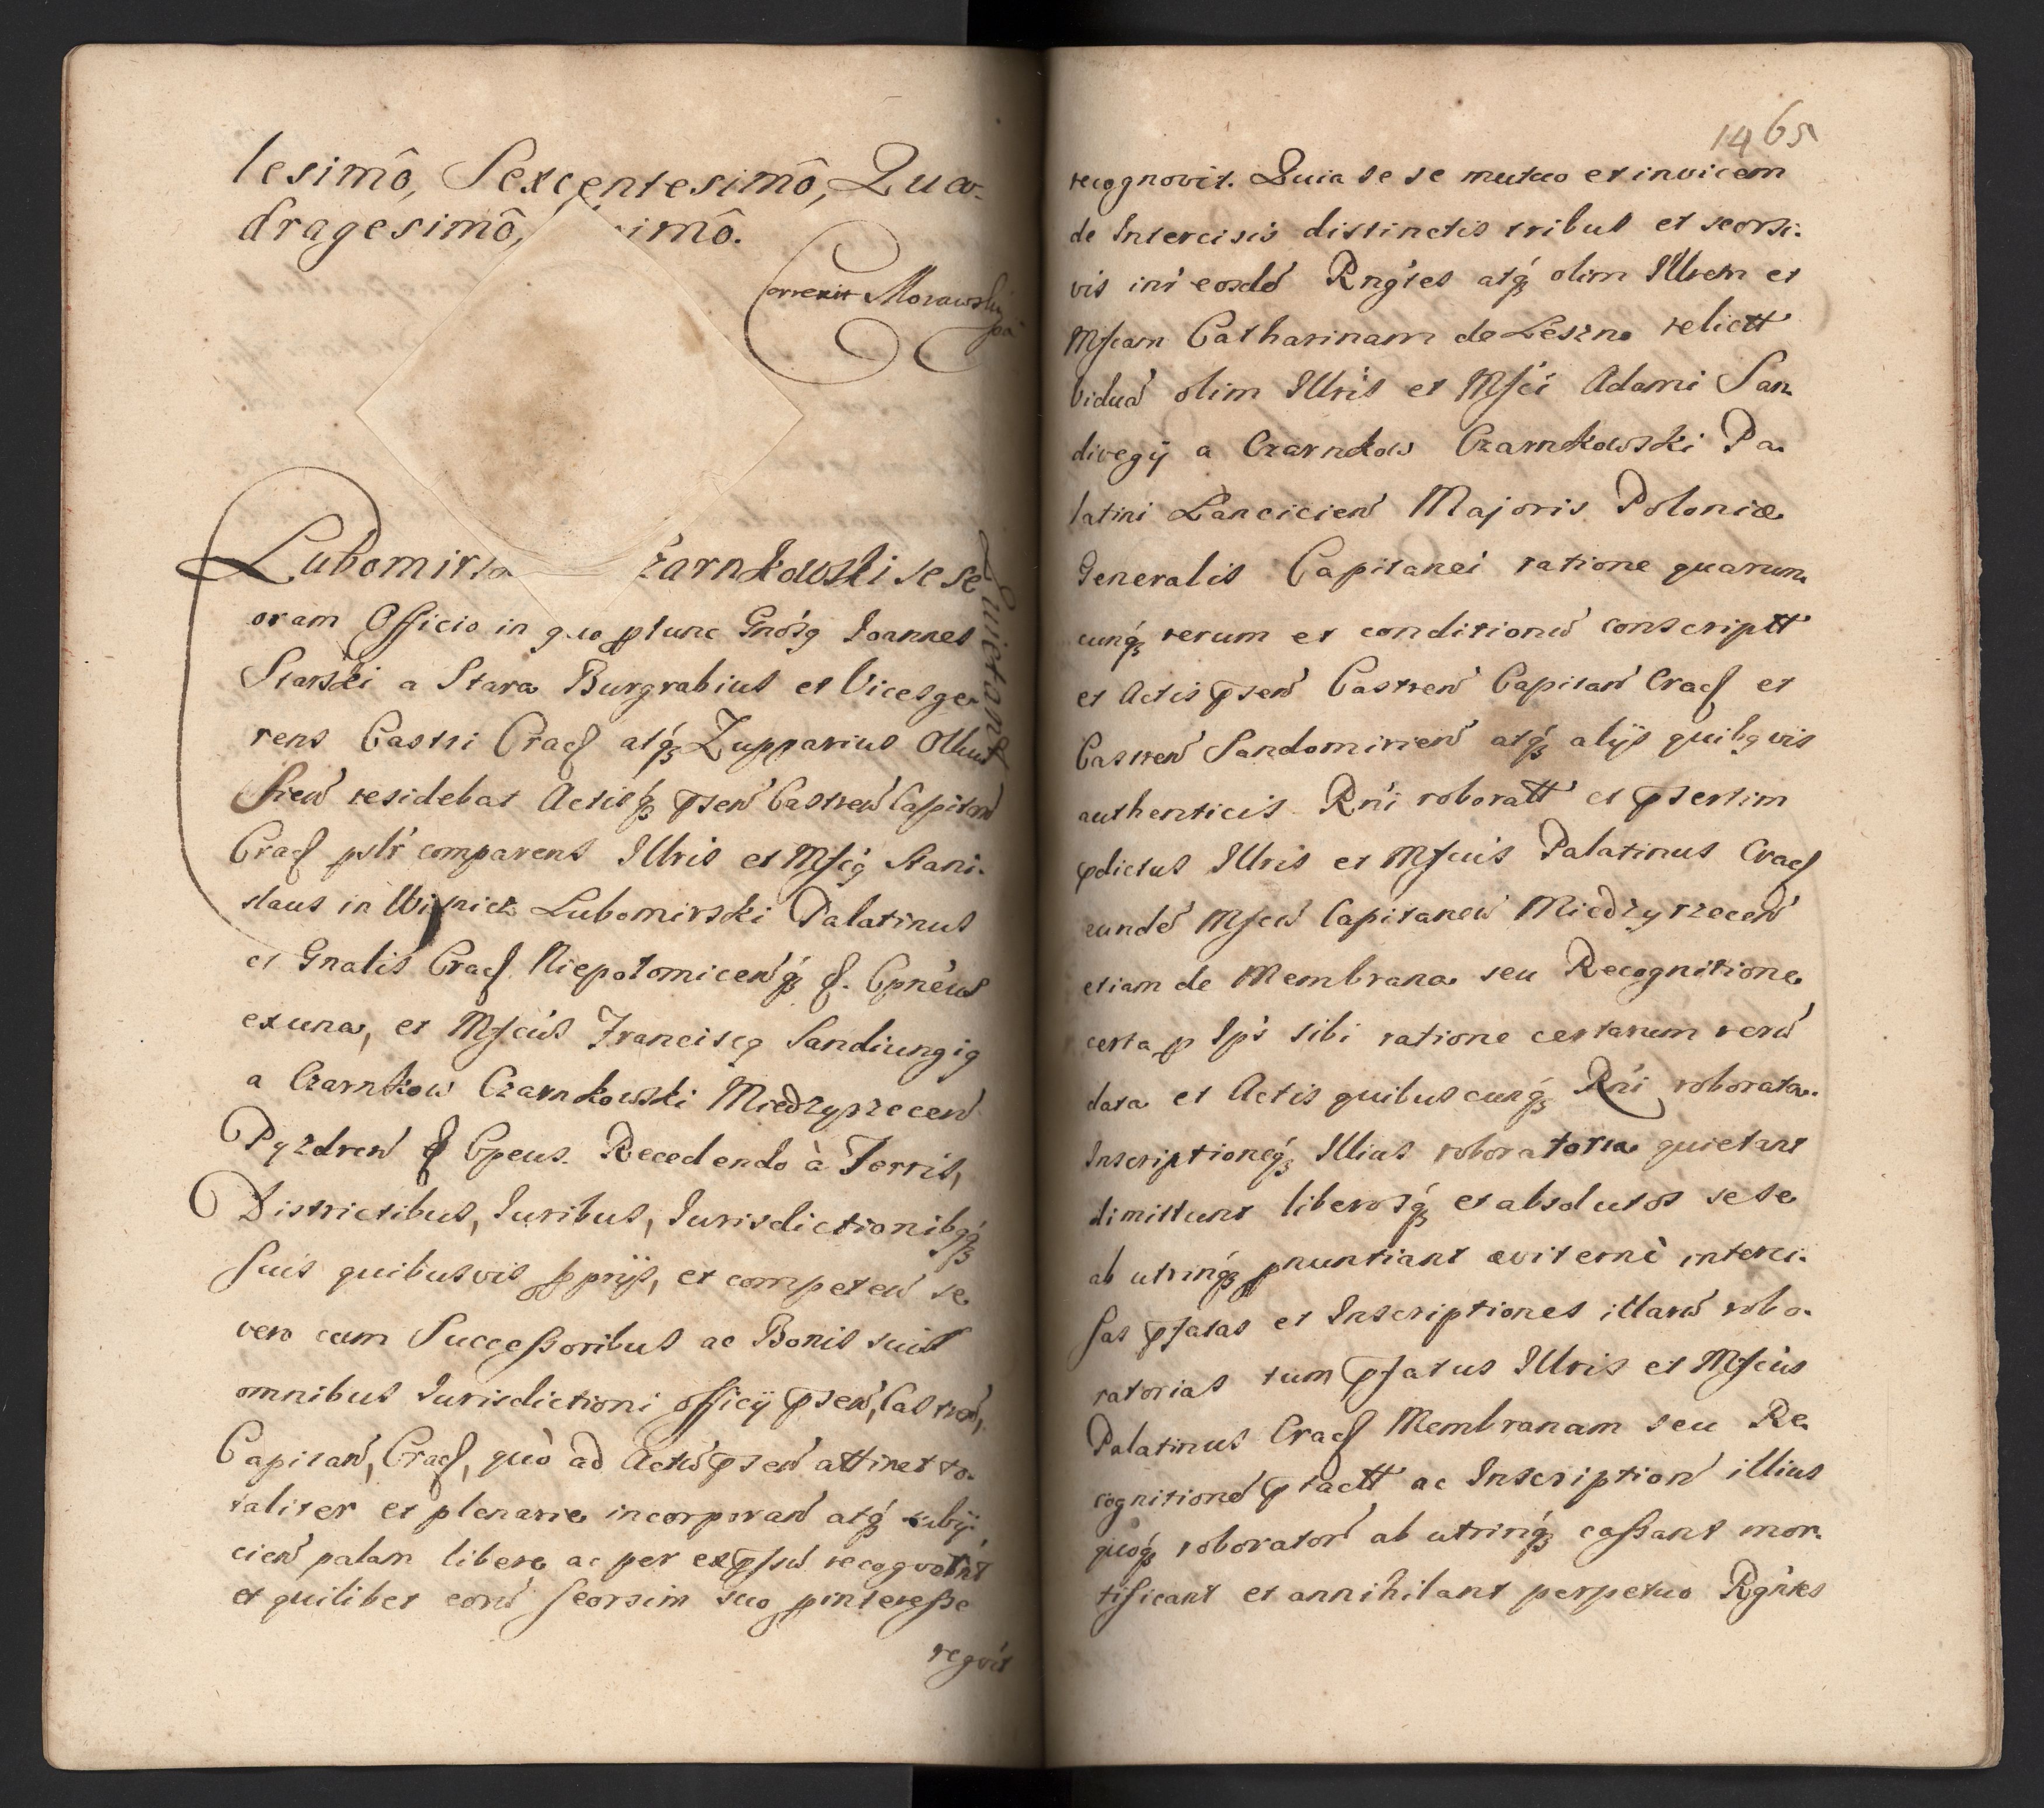 lesimô, Sexcentesimô, Qua-
dragesimô, imô.
Correxit Morawski
Lubomirs zarnkowski se se
Quietant
oram Officio in quo ptunc Gnósq Joannes
Starski a Stara Burgrabius et Vicesge-
rens Castri Cracꝭ atq́ꝫ Zupparius Olkus
residebat Actisq́ꝫ p̃sen̄ Castren̄ Capitan̄
Cracꝭ pslr̃ comparens Illris et Mfcq̃ Stani-
slaus in Wisnicz Lubomirski Palatinus
et Gnalis Cracꝭ Niepolomicen̄q́ꝫ ꝭ. Cpnéus
ex una, et Mfcús Franciscq Sandiungig
a Czarnkow Czarnkowski Miedzyrzecen̄
Pyzdren̄ ꝭ Cpeus. Recedendo à Terris,
Districtibus, Iuribus, Iurisdictionibqq́ꝫ
suis quibusvis ꝓprijs, et competen̄ se
vero cum Successoribus ac Bonis suis
omnibus Iurisdictioni officij p̃sen̄, Castren̄,
Capitan̄, Cracꝭ, quò ad Actū p̃sen̄ attinet to-
taliter et plenarie incorporan̄ atq́ꝫ subij-
cien̄ palam libere ac per exp̃ssū recogverūt
et quilibet eorū seorsim suo pinteresse
regvit
1465
recognovit. Quia se se mutuo et invicem
de Intercisis distinctis tribus et seorsi-
vis int́ eosdé Rngtes atq́ꝫ olim Illrem et
Mfcam Catharinam de Leszno relictt
viduā olim Illris et Mfcí Adami San-
divogij a Czarnkow Czarnkowski Pa-
latini Lancicien̄ Majoris Poloniæ
Generalis Capitanei ratione quarum-
cunq́ꝫ rerum et conditionū conscriptt
et Actis p̃sen̄ Castren̄ Capitan̄ Cracꝭ et
Castren̄ Sandomirien̄ atq́ꝫ alijs quibqvis
authenticis Rńi roboratt et p̃sertim
p̃dictus Illris et Mfcus Palatinus Cracꝭ
eundé Mfcū Capitaneū Miedzyrzecen̄
etiam de Membrana seu Recognitione
certa p Ips̃ sibi ratione certarum rerū
data et Actis quibuscunq́ꝫ Rńi roborata
Inscriptioneq́ꝫ Illius roboratoria quietant
dimittunt liberosq́ꝫ et absolutos se se
ab utrinq́ꝫ pnuntiant æviternè interci-
sas p̃fatas et Inscriptiones illarū robo-
ratorias tum p̃fatus Illris et Mfcús
Palatinus Cracꝭ Membranam seu Re-
cognitioné p̃tactt ac Inscription̄ illius
quoq́ꝫ roborator̄ ab utrinq́ꝫ cassant mor-
tificant et annihilant perpetuo Rgńtes